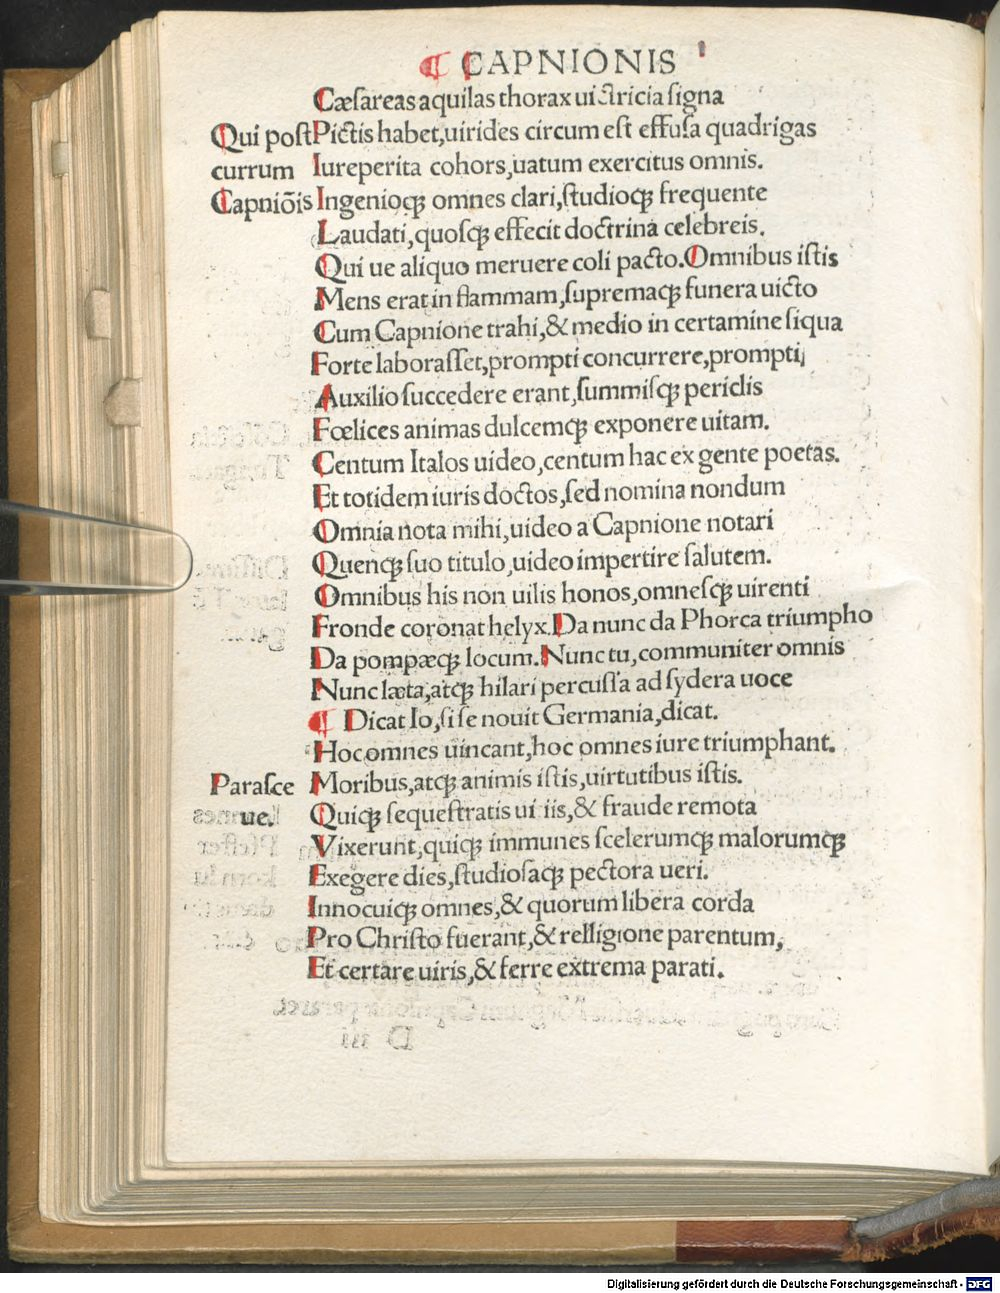 ¶ CAPNIONIS
Cæſareas aquilas thorax uictricia ſigna
Qui poſt Pictis habet, uirides circum eſt effuſa quadrigas
currum Iureperita cohors, uatum exercitus omnis.
Capniōis Ingenioqꝫ omnes clari, ſtudioqꝫ frequente
Laudati, quoſqꝫ effecit doctrina celebreis.
Qui ue aliquo meruere coli pacto. Omnibus iſtis
Mens erat in flammam, ſupremaqꝫ funera uicto
Cum Capnione trahi, & medio in certamine ſiqua
Forte laboraſſet, prompti concurrere, prompti,
Auxilio ſuccedere erant, ſummiſqꝫ periclis
Fœlices animas dulcemqꝫ exponere uitam.
Centum Italos uideo, centum hac ex gente poetas.
Et totidem iuris doctos, ſed nomina nondum
Omnia nota mihi, uideo a Capnione notari
Quenqꝫ ſuo titulo, uideo impertire ſalutem.
Omnibus his non uilis honos, omneſqꝫ uirenti
Fronde coronat helyx. Da nunc da Phorca triumpho
Da pompæqꝫ locum. Nunc tu, communiter omnis
Nunc læta, atqꝫ hilari percuſſa ad ſydera uoce
¶ Dicat Io, ſi ſe nouit Germania, dicat.
Hoc omnes uincant, hoc omnes iure triumphant.
Paraſce Moribus, atqꝫ animis iſtis, uirtutibus iſtis.
ue. Quiqꝫ ſequeſtratis ui iis, & fraude remota
Vixerunt, quiqꝫ immunes ſcelerumqꝫ malorumqꝫ
Exegere dies, ſtudioſaqꝫ pectora ueri.
Innocuiqꝫ omnes, & quorum libera corda
Pro Chriſto fuerant, & relligione parentum,
Et certare uiris, & ferre extrema parati.
Digitalisierung gefördert durch die Deutsche Forschungsgemeinschaft - DFG